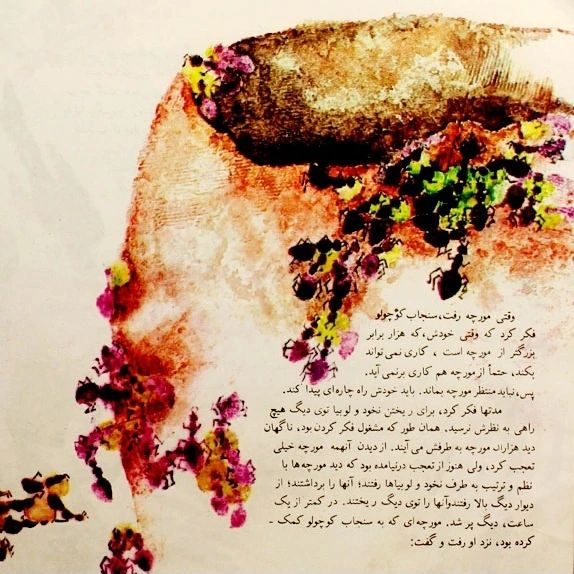 وقتی مورچه رفت، سنجاب کوچولو
فکر کرد که وقتی خودش، که هزار برابر
بزرگتر از مورچه است، کاری نمی‌تواند
بکند، حتماً از مورچه هم کاری برنمی‌آید.
پس، نباید منتظر مورچه بماند. باید خودش راه چاره‌ای پیدا کند.
مدتها فکر کرد، برای ریختن نخود و لوبیا توی دیگ هیچ
راهی به نظرش نرسید. همان طور که مشغول فکر کردن بود، ناگهان
دید هزاران مورچه به طرفش می‌آیند. از دیدن آنهمه مورچه خیلی
تعجب کرد، ولی هنوز از تعجب درنیامده بود که دید مورچه‌ها با
نظم و ترتیب به طرف نخود و لوبیاها رفتند؛ آنها را برداشتند؛ از
دیوار دیگ بالا رفتند و آنها را توی دیگ ریختند. در کمتر از یک
ساعت، دیگ پر شد. مورچه‌ای که به سنجاب کوچولو کمک ـ
کرده بود، نزد او رفت و گفت: